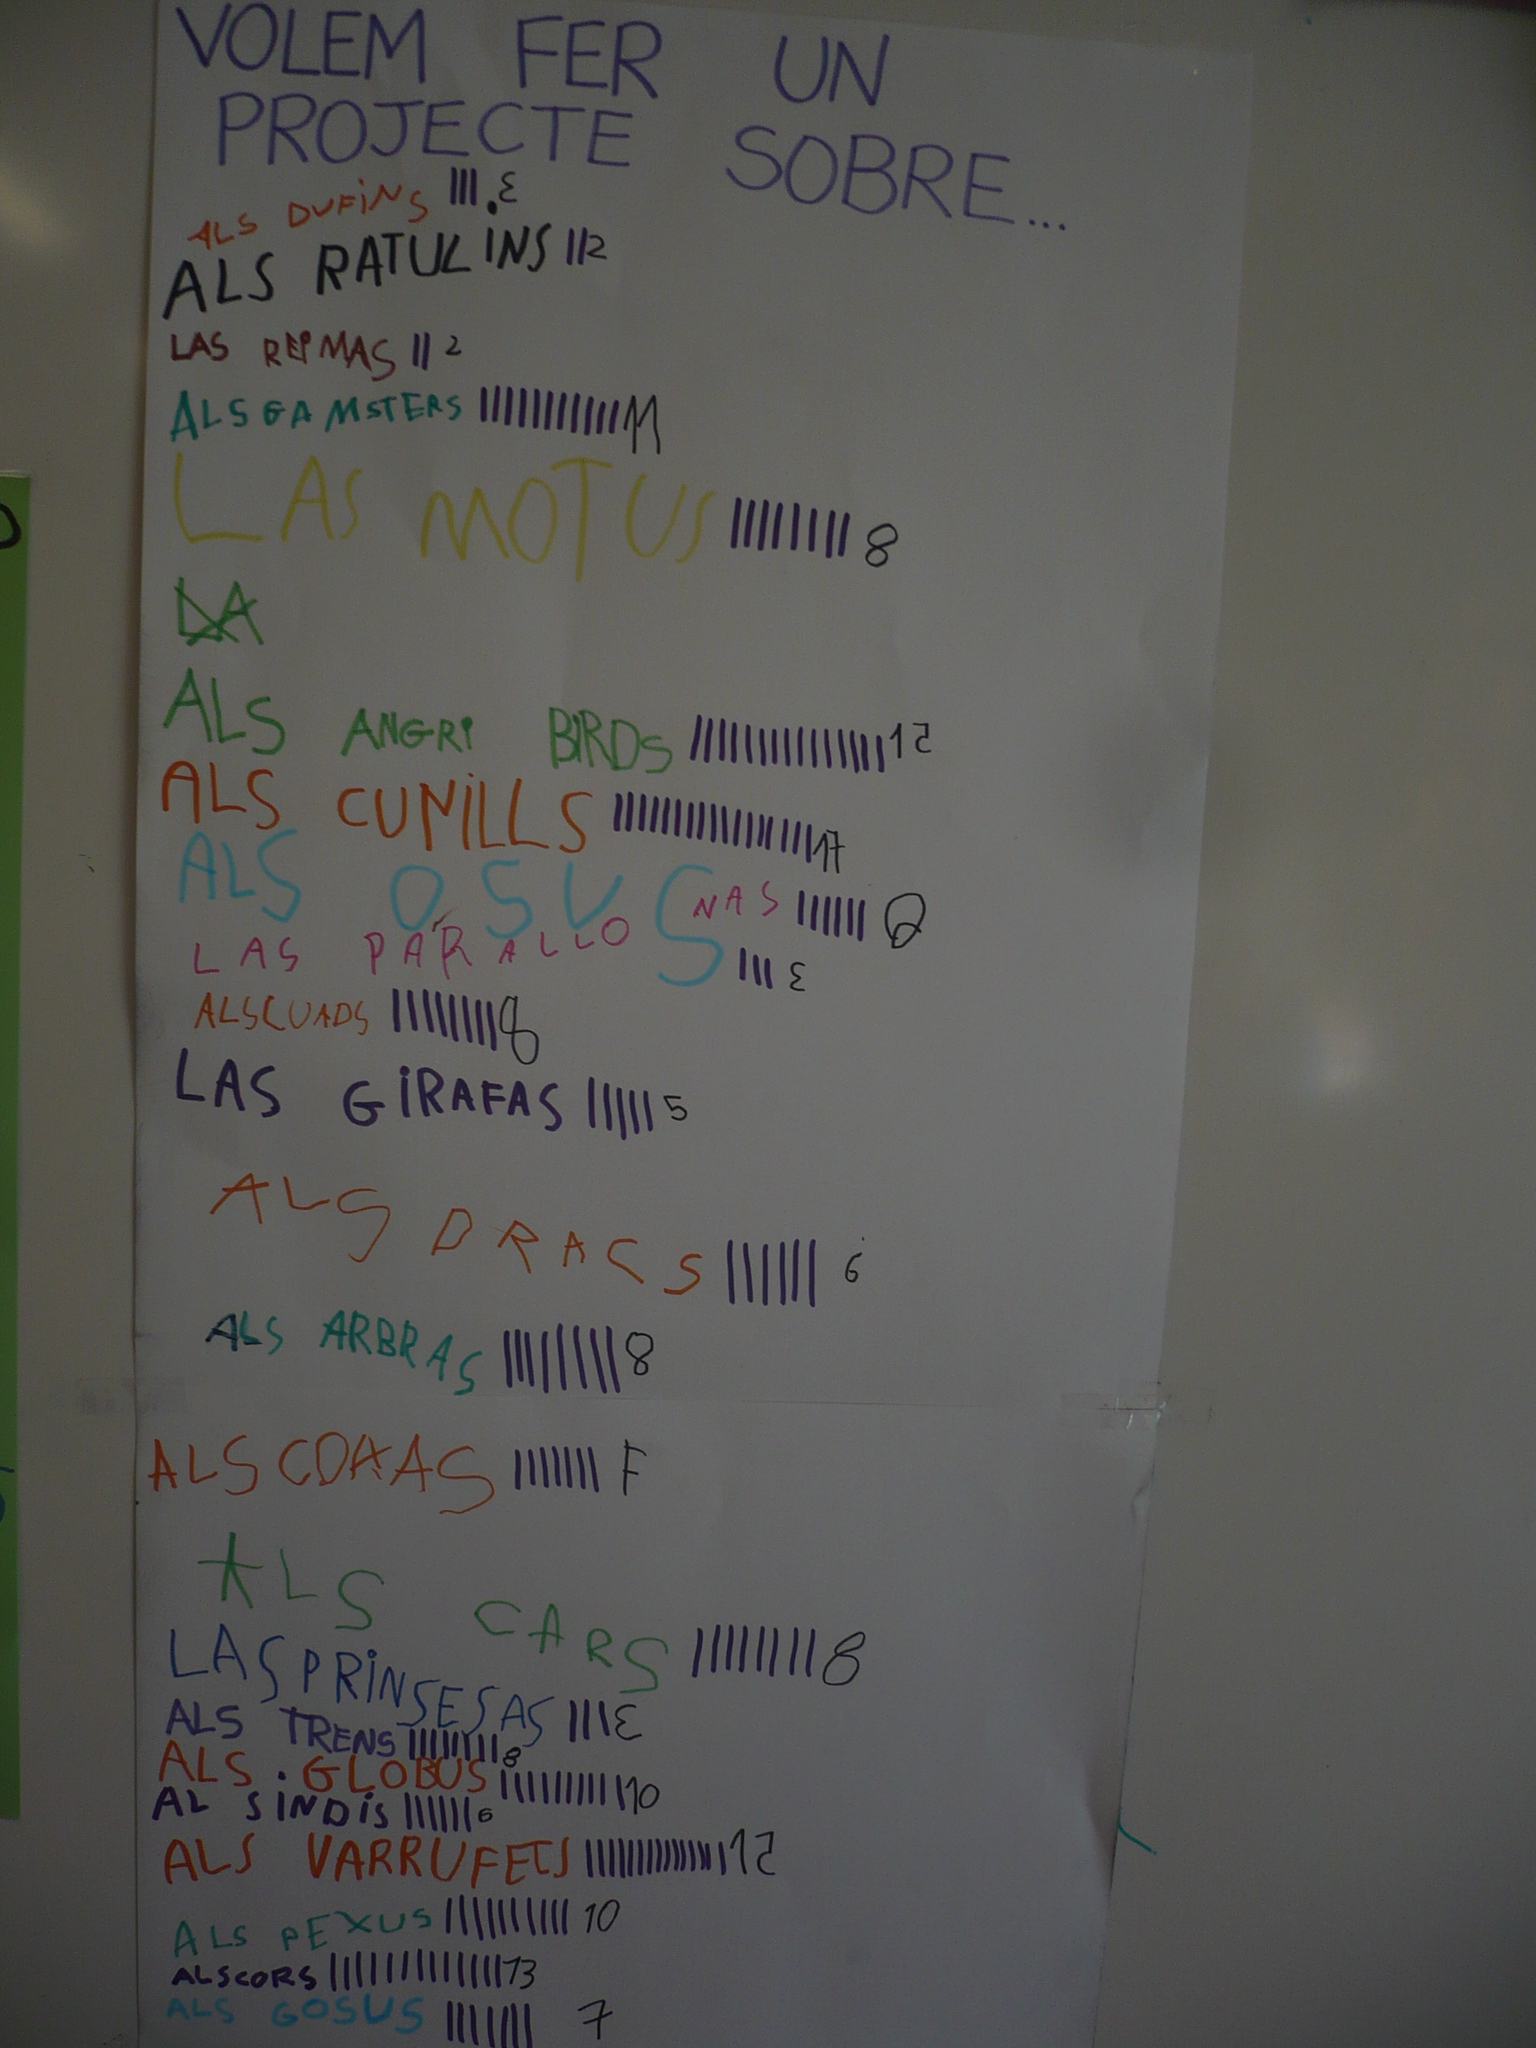 VOLEM FER UN
PROJECTE SOBRE...
ALS DUFiNS III.3
ALS RATULINS II2
LAS REiMAS II 2
ALS GAMSTERS IIIIIIIIIII 11
LAS MOTUS IIIIIIII 8
ALS ANGRi BiRDS 15
ALS CUNiLLS 17
ALS OSUS III 3
LAS PARALLONAS IIIIII
ALSCUADS IIIIIIII 8
LAS GiRAFAS IIIII 5
ALS DRACS IIIIII 6
ALS ARBRAS IIIIIIII 8
ALS IIIIIII 7
ALS CARS IIIIIIII 8
LAS PRiNSESAS III 3
ALS TRENS IIIIIIII 8
ALS .GLOBUS IIIIIIIIII 10
AL SiNDiS IIIIII 6
ALS VARRUFETS 12
ALS PEXUS IIIIIIIIII 10
ALSCORS IIIIIIIIIIIII 13
ALS GOSUS IIIIIII 7